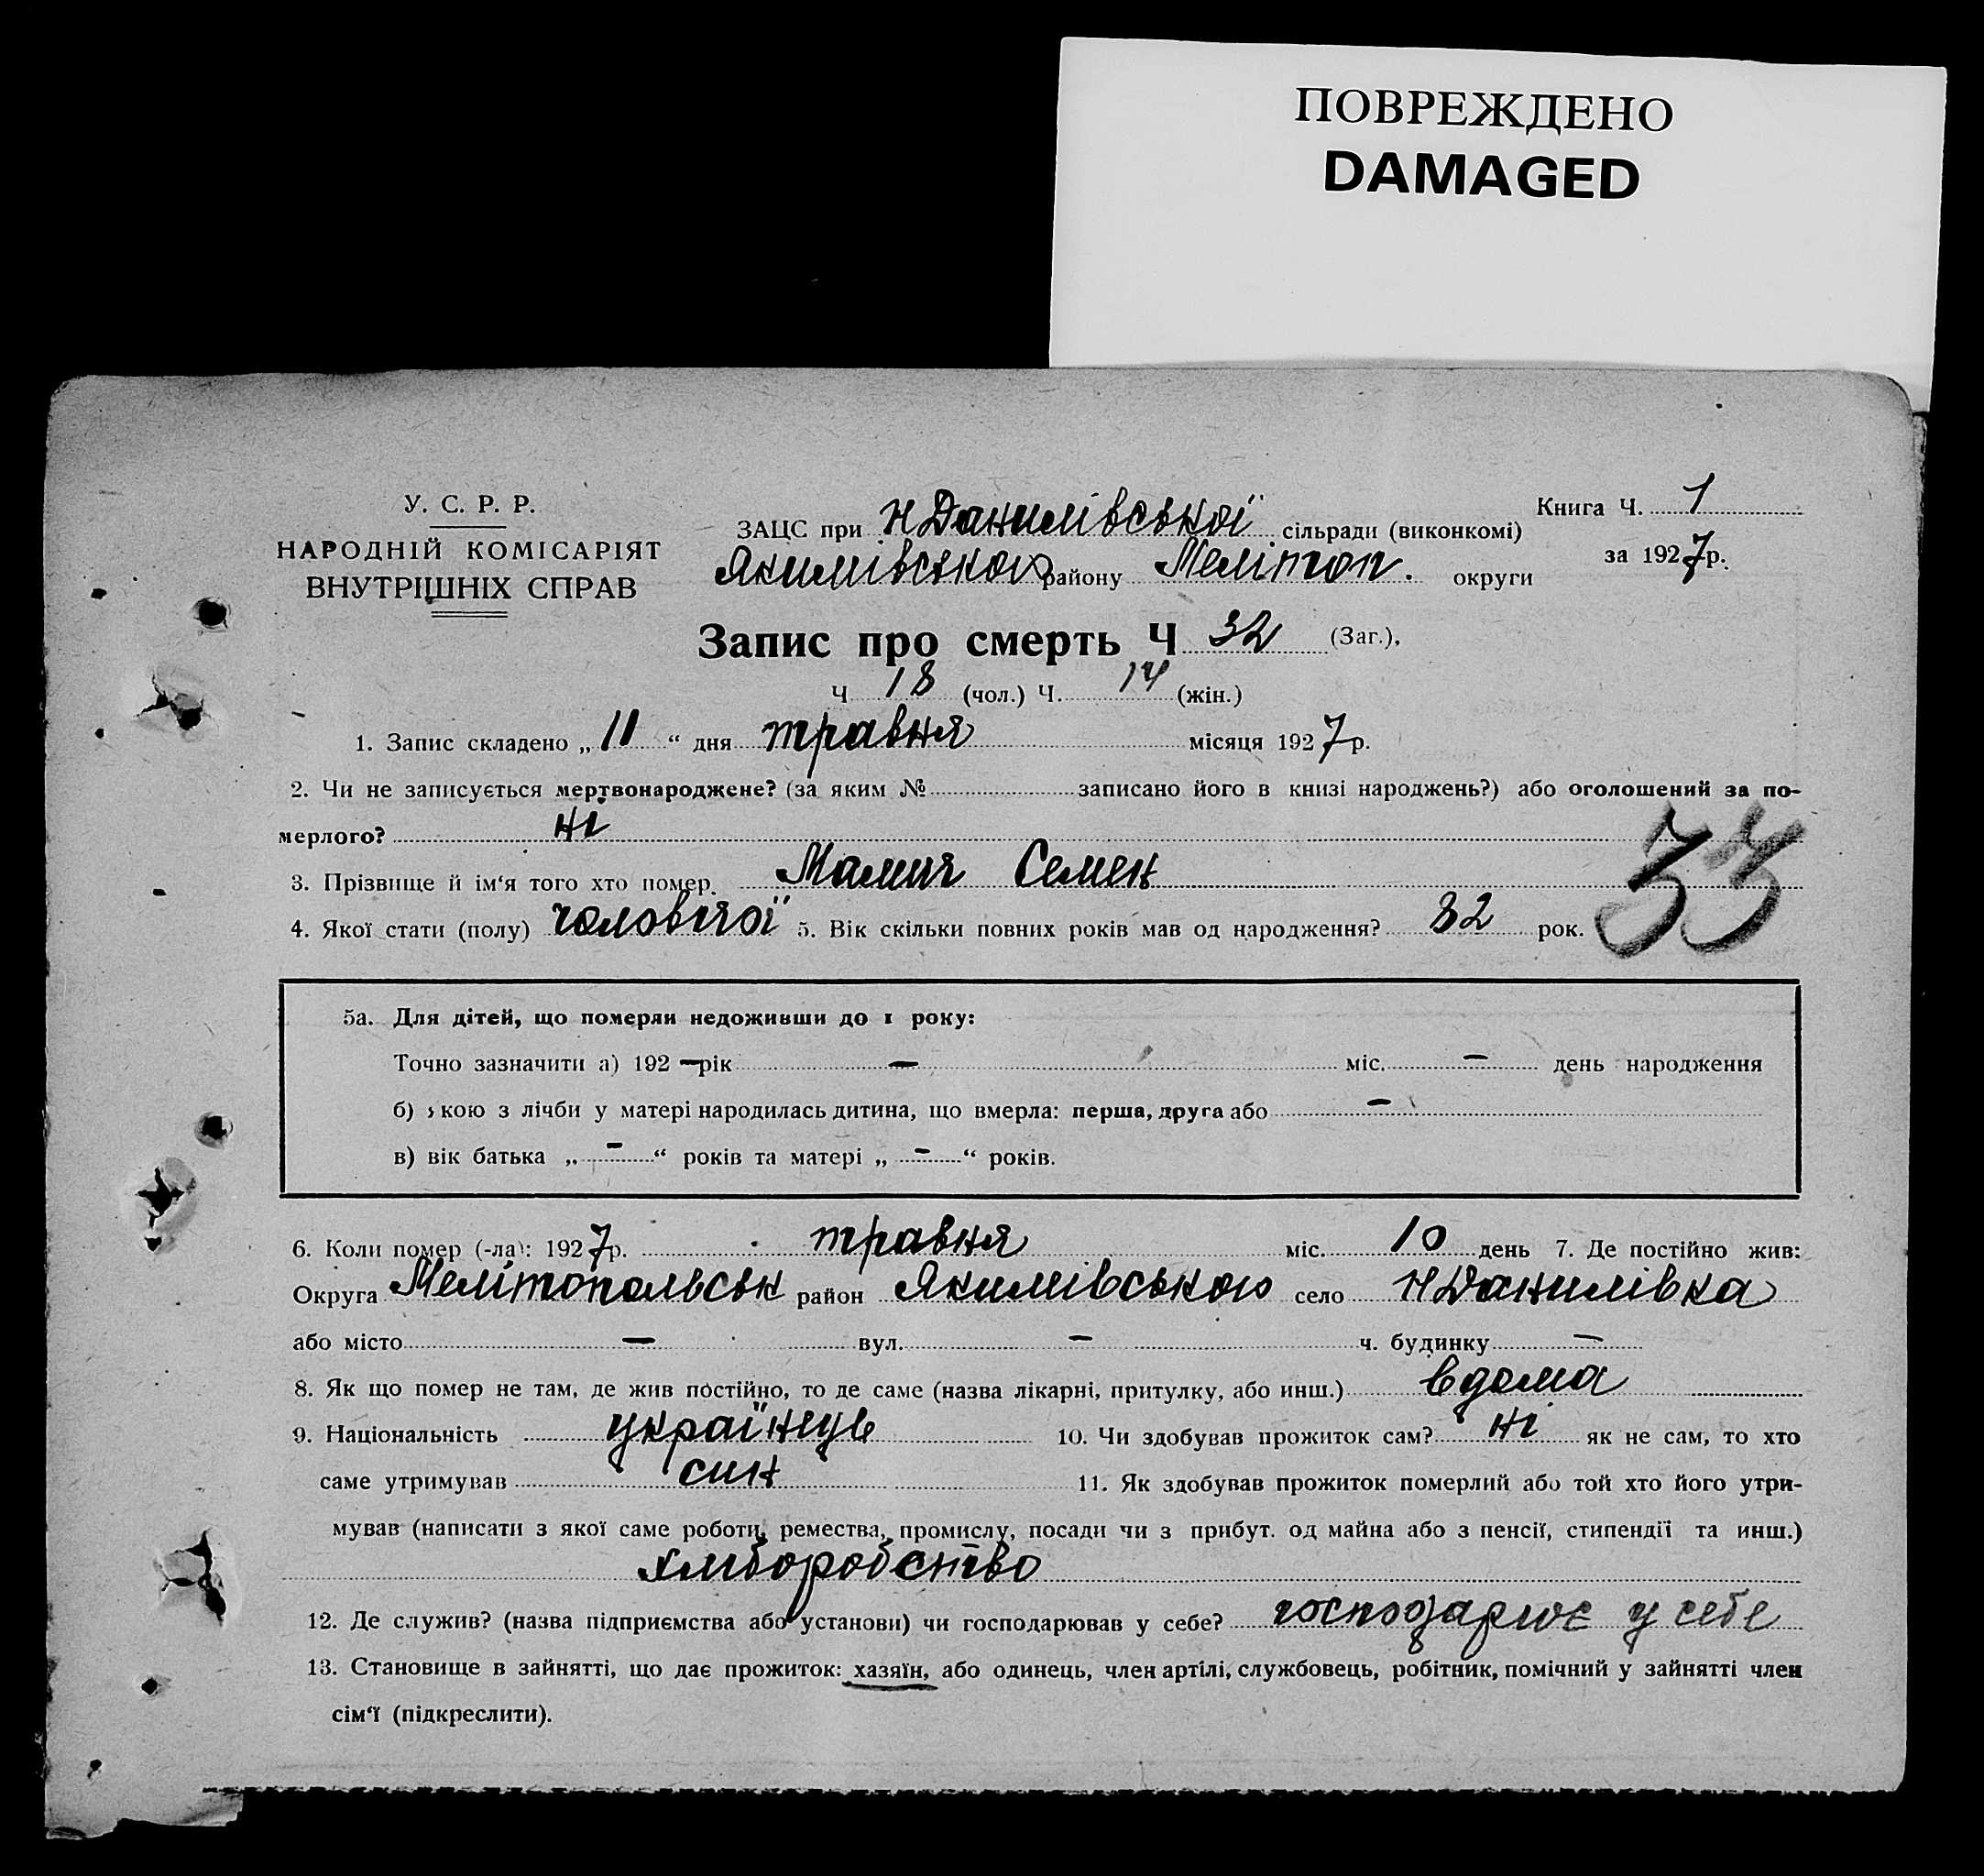 ПОВРЕЖДЕНО
DAMAGED
У. С. Р. Р.
НАРОДНІЙ КОМІСАРІЯТ
ВНУТРІШНІХ СПРАВ
ЗАЦС при Н Данилівської сільради (виконкомі)
Якимівського району Мелітоп. округи
Книга Ч. 1
за 1927р.
Запис про смерть Ч 32 (Заг.),
Ч 18 (чол.) Ч. 14 (жін.)
1. Запис складено „ 11 “ дня травня місяця 1927р.
2. Чи не записується мертвонароджене? (за яким № записано його в книзі народжень?) або оголошений за по-
мерлого? ні
33
3. Прізвище й ім‘я того хто помер. Семен
4. Якої стати (полу) чоловічої 5. Вік скільки повних років мав од народження? 82 рок.
5а. Для дітей, що померли недоживши до 1 року:
Точно зазначити а) 192 – рік – міс. – день народження
б) якою з лічби у матері народилась дитина, що вмерла: перша, друга або –
в) вік батька „ – “ років та матері „ – “ років.
6. Коли помер (-ла): 1927р. травня міс. 10 день 7. Де постійно жив:
Округа Мелітопольськ район Якимівського село Н Данилівка
або місто – вул. – ч. будинку –
8. Як що помер не там, де жив постійно, то де саме (назва лікарні, притулку, або инш.) вдома
9. Національність українець 10. Чи здобував прожиток сам? ні як не сам, то хто
саме утримував син 11. Як здобував прожиток померлий або той хто його утри-
мував (написати з якої саме роботи, ремества, промислу, посади чи з прибут. од майна або з пенсії, стипендії та инш.)
хліборобство
12. Де служив? (назва підприємства або установи) чи господарював у себе? господарює у себе
13. Становище в зайнятті, що дає прожиток: хазяїн, або одинець, член артілі, службовець, робітник, помічний у зайнятті член
сім‘ї (підкреслити).